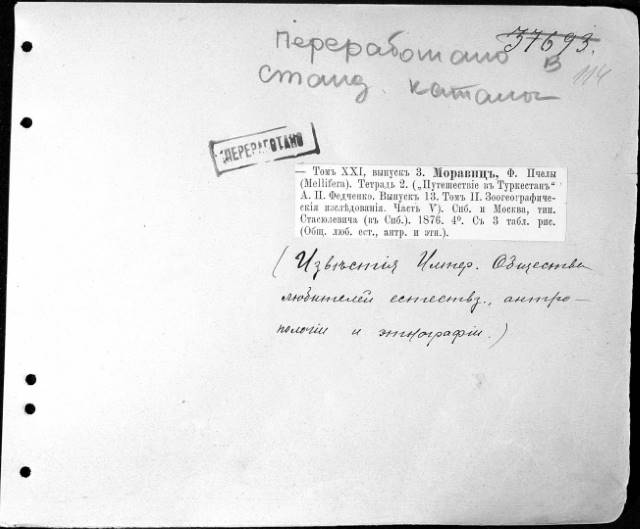 37693.
Переработано в
станд. каталог
114
ПЕРЕРАБОТАНО
— Томъ XXI, выпускъ 3. Моравицъ, Ф. Пчелы
(Mellifera). Тетрадь 2. („Путешествіе въ Туркестанъ“
А. П. Федченко. Выпускъ 13. Томъ II. Зоогеографиче-
скія изслѣдованія. Часть V). Спб. и Москва, тип.
Стасюлевича (въ Спб.). 1876. 4°. Съ 3 табл. рис.
(Общ. люб. ест., антр. и этн.).
(Извѣстія Импер. Общества
любителей естествз., антро-
пологіи и этнографіи.)